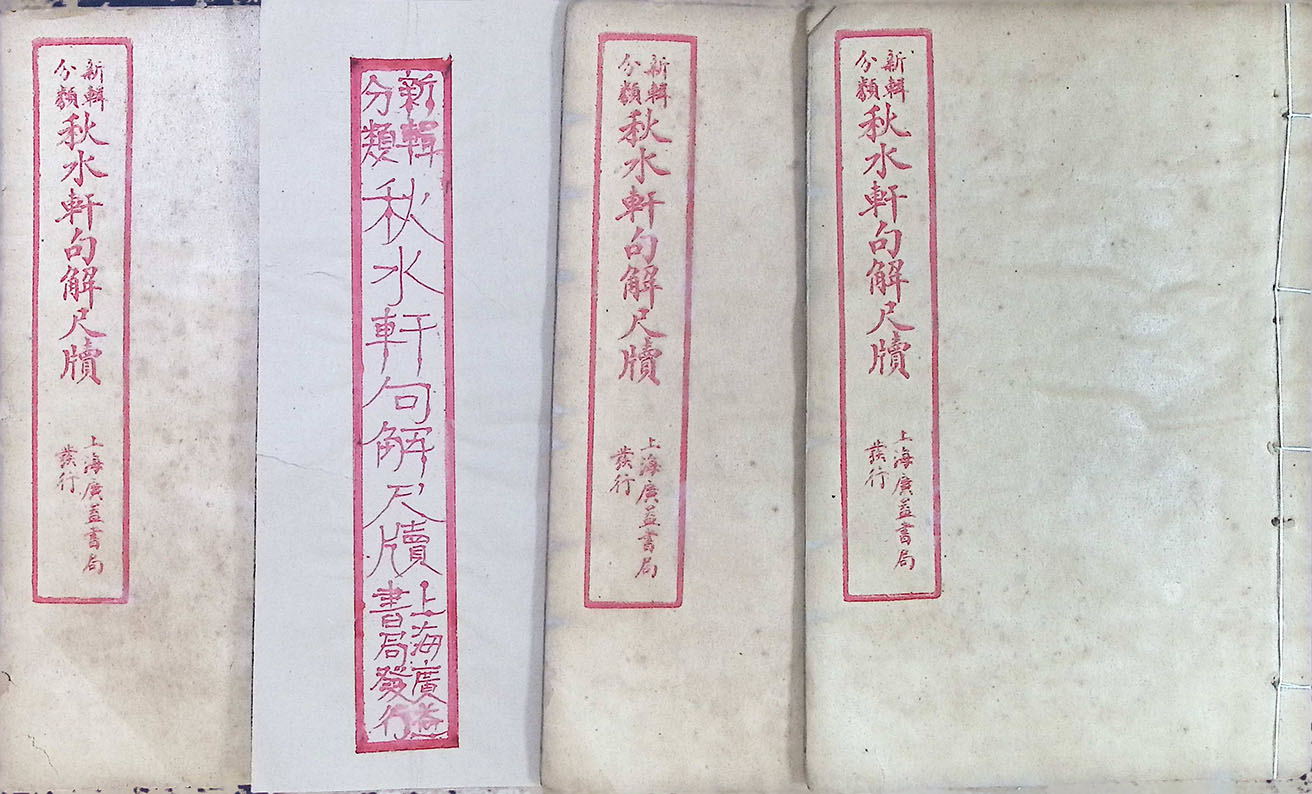 新輯
分類
秋水軒句解尺牘
上海廣益書局
發行
新輯
分類
秋水軒句解尺牘
上海廣益
書局發行
新輯
分類
秋水軒句解尺牘
上海廣益書局
發行
新輯
分類
秋水軒句解尺牘
上海廣益書局
發行